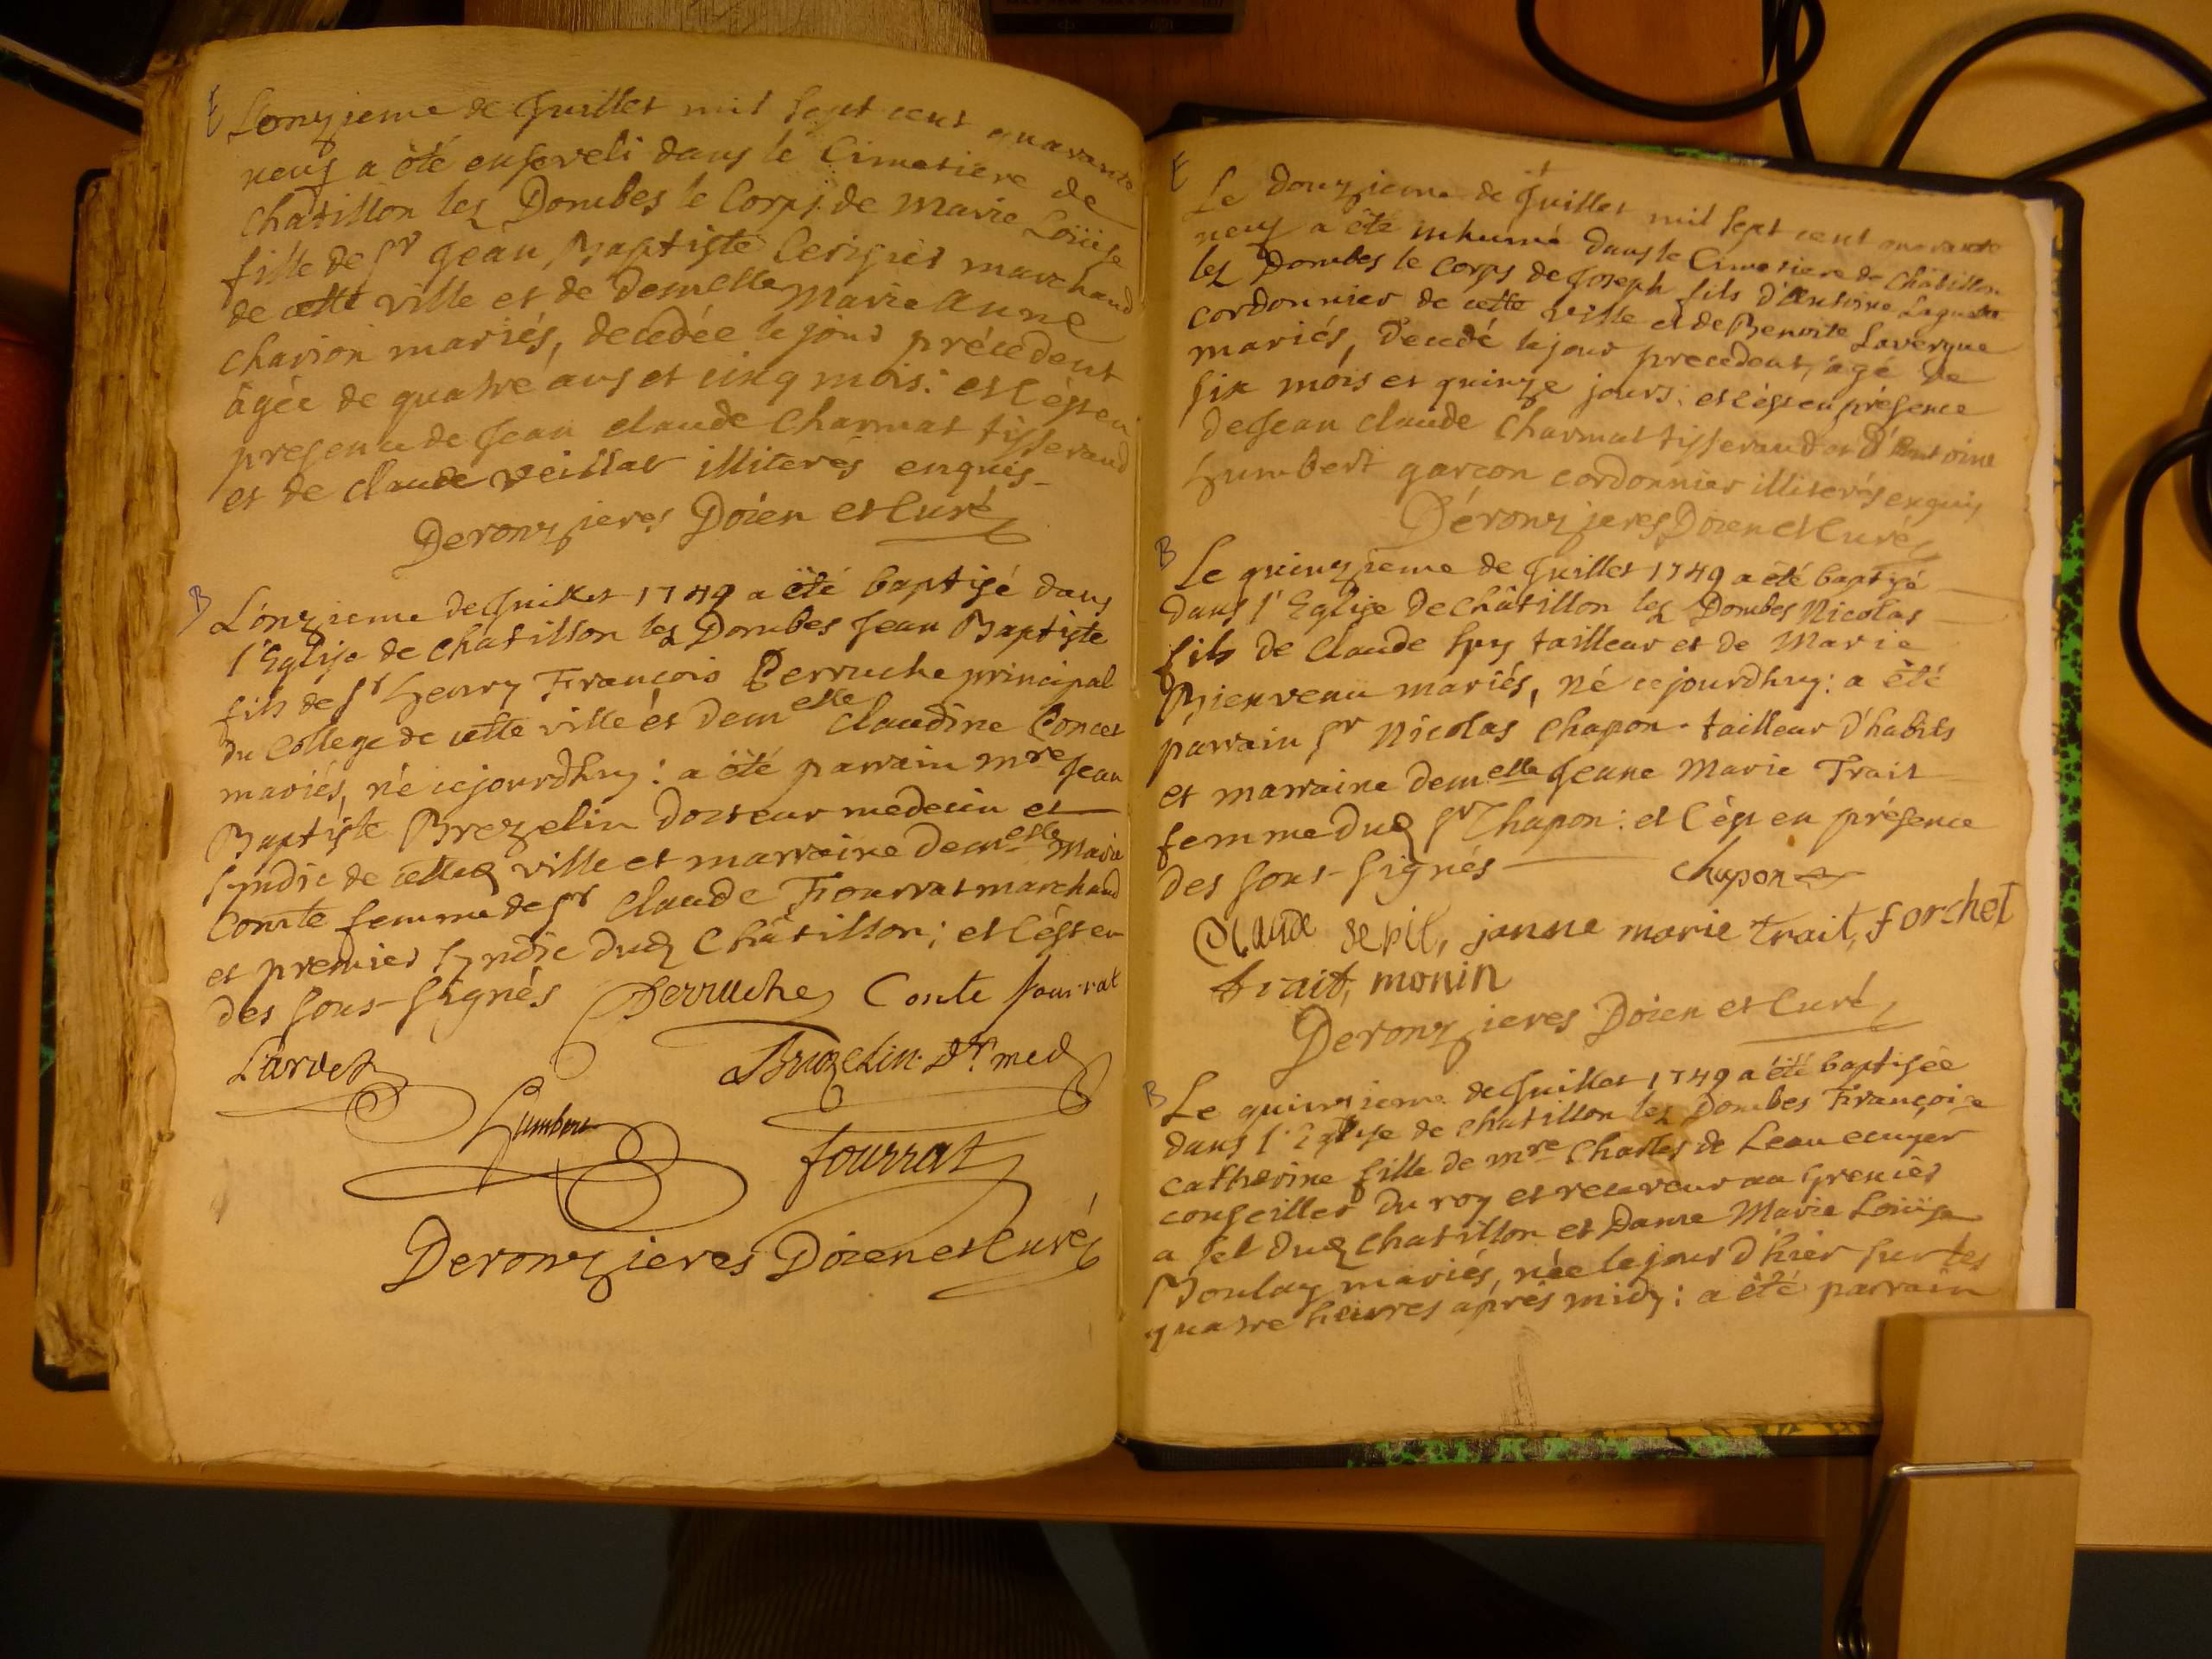 E
L'onzieme de Juillet mil sept cent quarante
neuf a été enseveli dans le Cimetiere de
chatillon lez Dombes le Corps de Marie Loüise
fille de Sr Jean Baptiste marchand
de cette ville et de Demelle Marie Anne
mariés, decedée le jour précedent
âgée de quatre ans et cinq mois: et c'est en
presence de Jean claude Charmat tisserand
et de claude veillat illiterés enquis-
Deronzieres Doien et Curé
B
L'onzieme de Juillet 1749 a été baptisé dans
l'Eglise de chatillon lez Dombes Jean Baptiste
fils de Sr henry François Perruche principal
du College de cette ville et demelle claudine
mariés, né cejourdhuy: a été parrain mre Jean
Baptiste Brezelin docteur medecin et
syndic de cetted ville et marraine demelle Marie
Comte femme de Sr claude Fourrat marchand
et premier syndic dud Châtillon; et c'est en
des sous-signés Perruche Conte fourrat
Brezelin Dr. med
fourrat
Deronzieres Doien et Curé
E
Le douzieme de Juillet mil sept cent quarante
neuf a été inhumé dans le Cimetiere de Châtillon
lez Dombes le corps de Joseph fils d'Antoine
cordonnier de cette ville et de Benoite Lavergne
mariés, decedé le jour precedent, agé de
six mois et quinze jours: et c'est en présence
de Jean claude Charmat tisserand et d'Antoine
humbert garçon cordonnier illiterés enquis
Déronzieres Doien et Curé
B
Le quinzieme de Juillet 1749 a été baptisé
dans l'Eglise de Châtillon lez Dombes Nicolas
fils de claude Spy tailleur et de Marie
Bienveau mariés, né cejourdhuy: a été
parrain Sr Nicolas Chapon tailleur d'habits
et marraine demelle Jeane Marie Trait
femme dud Sr Chapon: et c'est en présence
des sous-signés chapon
Claude sepit, janne marie trait, forchet
trait, monin
Deronzieres Doien et Curé
B
Le quinzieme de Juillet 1749 a été baptisée
dans l'Eglise de chatillon lez Dombes Françoise
catherine fille de mre Charles de Leau ecuyer
conseiller du roy et receveur au Grenier
a sel dud chatillon et Dame Marie Loüise
Boulay mariés, née le jour d'hier sur les
quatre heures après midy: a été parrain